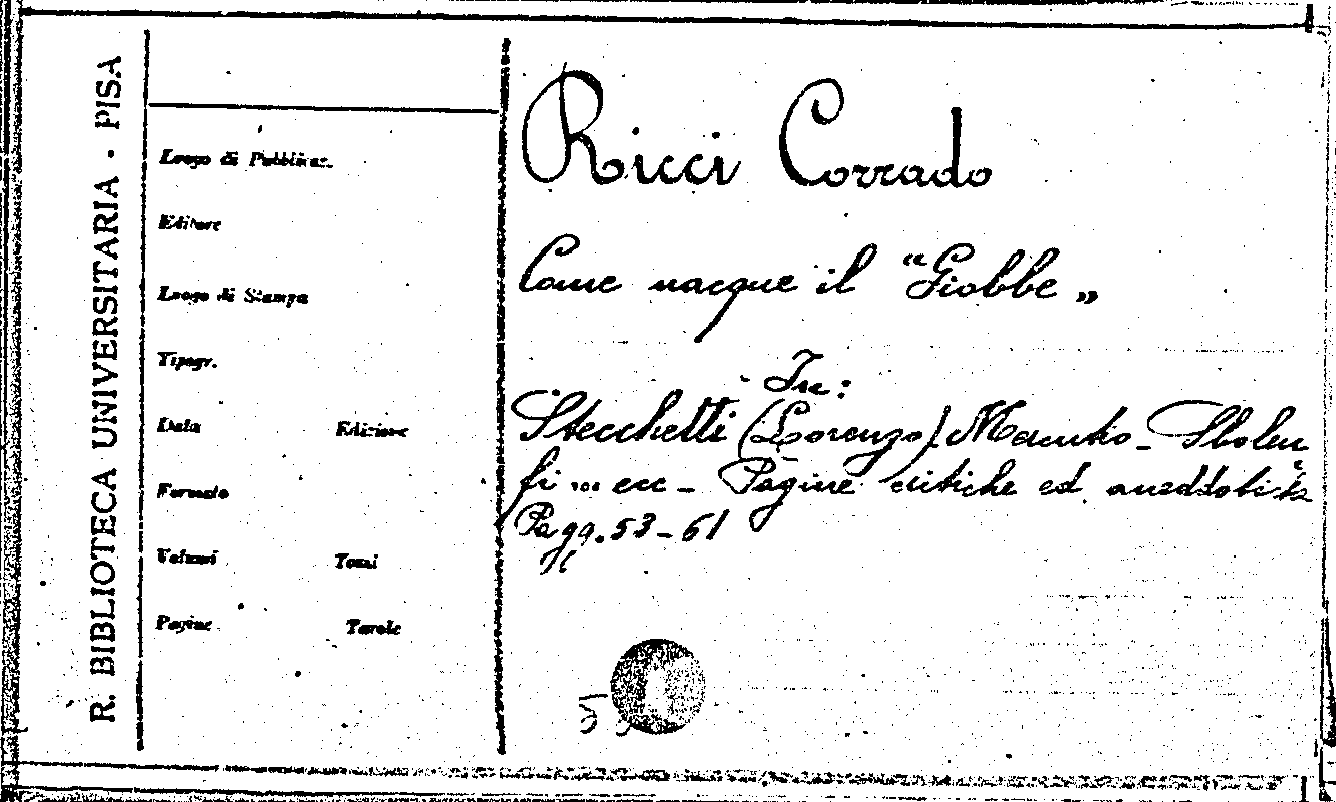 R. BIBLIOTECA UNIVERSITARIA - PISA
Luogo di Pubblicaz.
Editore
Luogo di Stampa
Tipogr.
Data Edizione
Formato
Volumi Tomi
Pagine Tavole
Ricci Corrado
Come nacque il "Giobbe„
In:
Stecchetti (Lorenzo). Mercutio - Sbolen
fi ... ecc - Pagine critiche ed aneddotiche
Pagg. 53-61